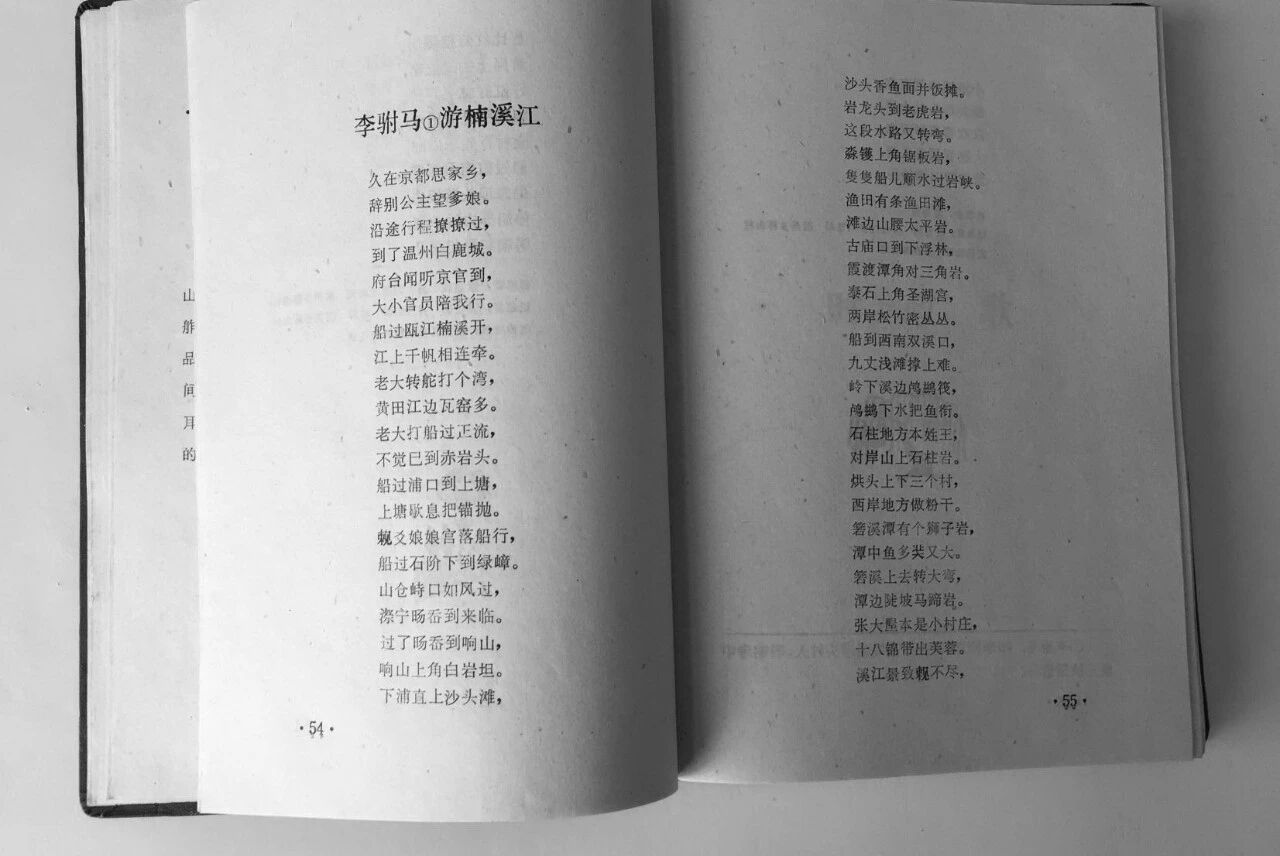 山
舴
品
间
耳
的
李驸马①游楠溪江
久在京都思家乡，
辞别公主望爹娘。
沿途行程撩撩过，
到了温州白鹿城。
府台闻听京官到，
大小官员陪我行。
船过瓯江楠溪开，
江上千帆相连牵。
老大转舵打个湾，
黄田江边瓦窑多。
老大打船过正流，
不觉巳到赤岩头。
船过浦口到上塘，
上塘歇息把锚抛。
爻娘娘宫落船行，
船过石阶下到绿嶂。
山仓峙口如风过，
宁旸岙到来临。
过了旸岙到响山，
响山上角白岩坦。
下浦直上沙头滩，
·54·
沙头香鱼面并饭摊。
岩龙头到老虎岩，
这段水路又转弯。
淼镬上角锯板岩，
隻隻船儿顺水过岩峡。
渔田有条渔田滩，
滩边山腰太平岩。
古庙口到下浮林，
霞渡潭角对三角岩。
泰石上角圣湖宫，
两岸松竹密丛丛。
船到西南双溪口，
九丈浅滩撑上难。
岭下溪边鸬鹚筏，
鸬鹚下水把鱼衔。
石柱地方本姓王，
对岸山上石柱岩。
烘头上下三个村，
西岸地方做粉干。
箬溪潭有个狮子岩，
潭中鱼多奘又大。
箬溪上去转大弯，
潭边陡坡马蹄岩。
张大屋本是小村庄，
十八锦带出芙蓉。
溪江景致不尽，
·55·